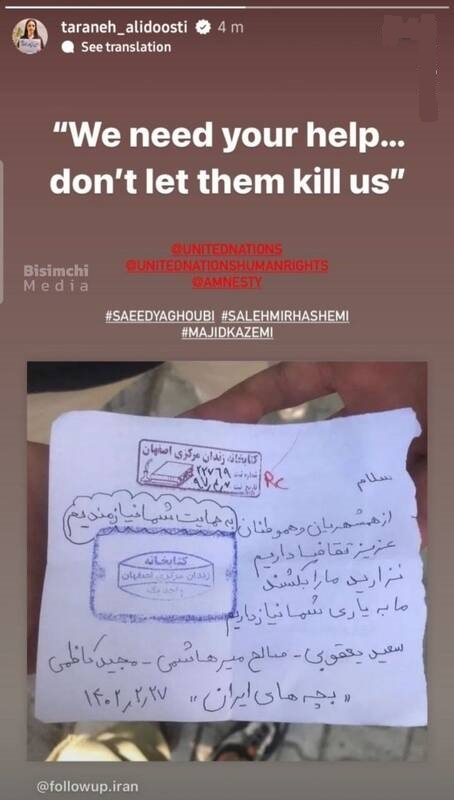 taraneh_alidoosti 4 m
See translation
“We need your help...
don’t let them kill us”
@UNITEDNATIONS
@UNITEDNATIONSHUMANRIGHTS
@AMNESTY
Bisimchi
Media
#SAEEDYAGHOUBI #SALEHMIRHASHEMI
#MAJIDKAZEMI
کتابخانه زندان مرکزی اصفهان
شماره ثبت ۲۲۷۶۹
تاریخ ثبت ۹۷,۴,۷
RC
سلام
از همشهریان و هموطنان
به حمایت شما نیازمندیم
عزیز تقاضا داریم
نزارید ما را بکشند
ما به یاری شما نیاز داریم
کتابخانه
زندان مرکزی اصفهان
سعید یعقوبی - صالح میرهاشمی - مجید کاظمی
"بچه های ایران" ۱۴۰۲,۲,۲۷
@followup.iran